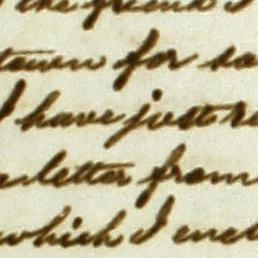 the friend I
town for so
I have just re
a letter from
which I encl